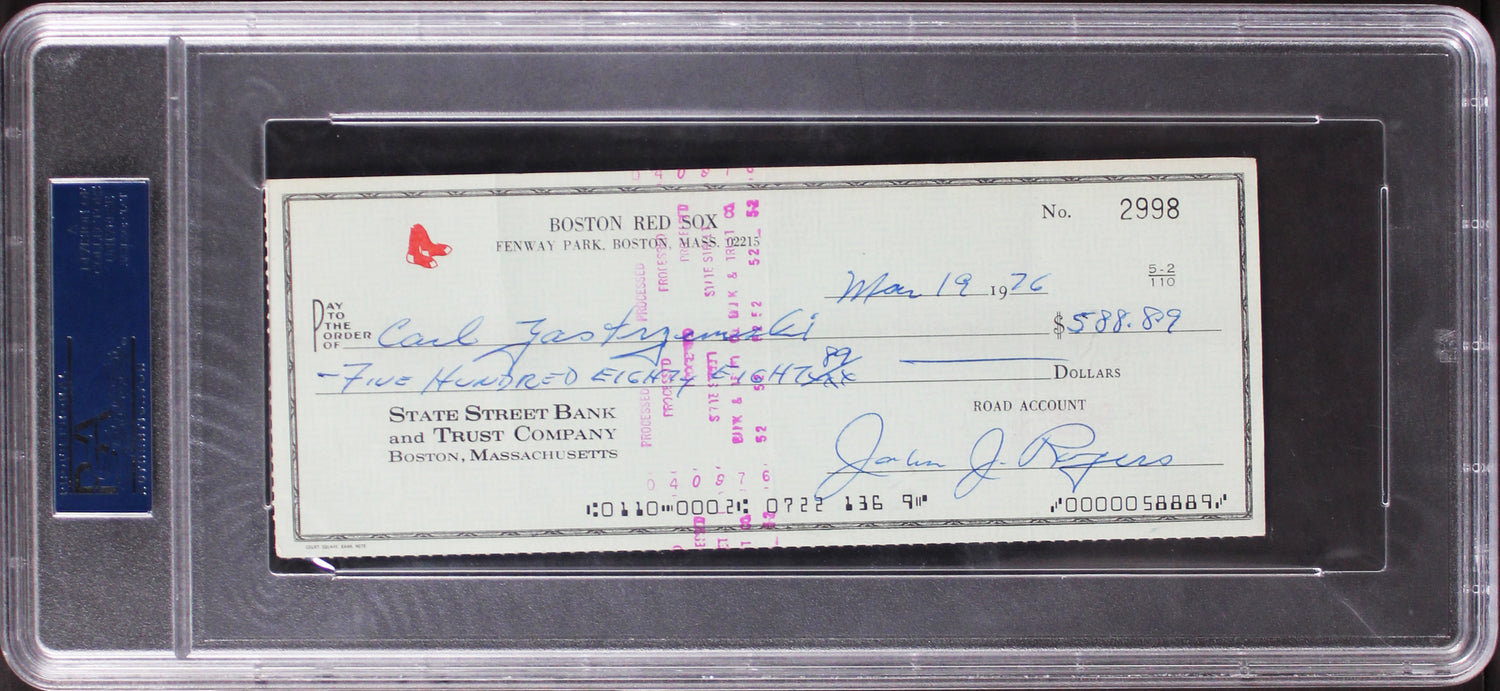 BOSTON RED SOX
FENWAY PARK, BOSTON, MASS. 02215
No. 2998
5-2
110
Mar 19 1976
PAY
TO
THE
ORDER
OF Carl Yastrzemski $588.89
-FIVE HUNDRED EIGHTY EIGHT 89/ DOLLARS
STATE STREET BANK
and TRUST COMPANY
BOSTON, MASSACHUSETTS
ROAD ACCOUNT
John J. Rogers
0110 0002 0722 136 9
0000058889
PROCESSED
PROCESSED
PROCESSED
PROCESSED
040976